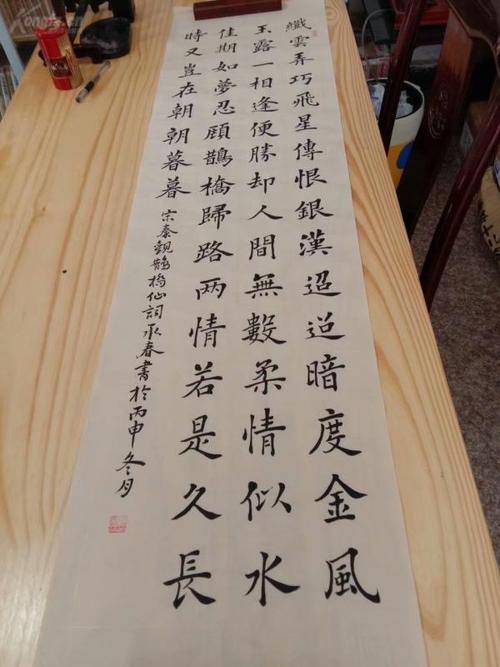 纖雲弄巧飛星傳恨銀漢迢迢暗度金風
玉露一相逢便勝却人間無數柔情似水
佳期如夢忍顧鵲橋歸路两情若是久長
時又豈在朝朝暮暮
宗秦觀鵲橋仙詞承春書於丙申冬月